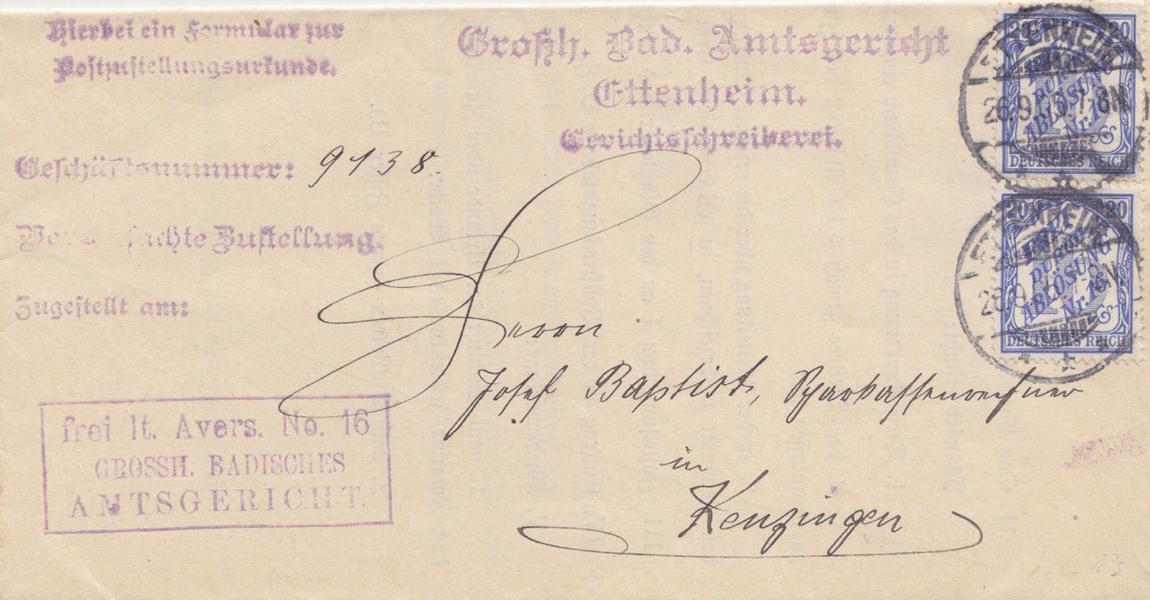 Hierbei ein Formular zur
Postzustellungsurkunde.
Großh. Bad. Amtsgericht
Ettenheim.
Gerichtsschreiberei.
Geschäftsnummer: 9138.
Zustellung.
Zugestellt am:
Herrn
Josef Baptist, Sparkassenrechner
in
Kenzingen
frei lt. Avers. No. 16
GROSSH. BADISCHES
AMTSGERICHT.
20 20
FREI DURCH
ABLÖSUNG
Nr. 16
DEUTSCHES REICH
ETTENHEIM
26.9. 8N.
20 20
FREI DURCH
ABLÖSUNG
Nr. 16
DEUTSCHES REICH
ETTENHEIM
26.9. 8N.